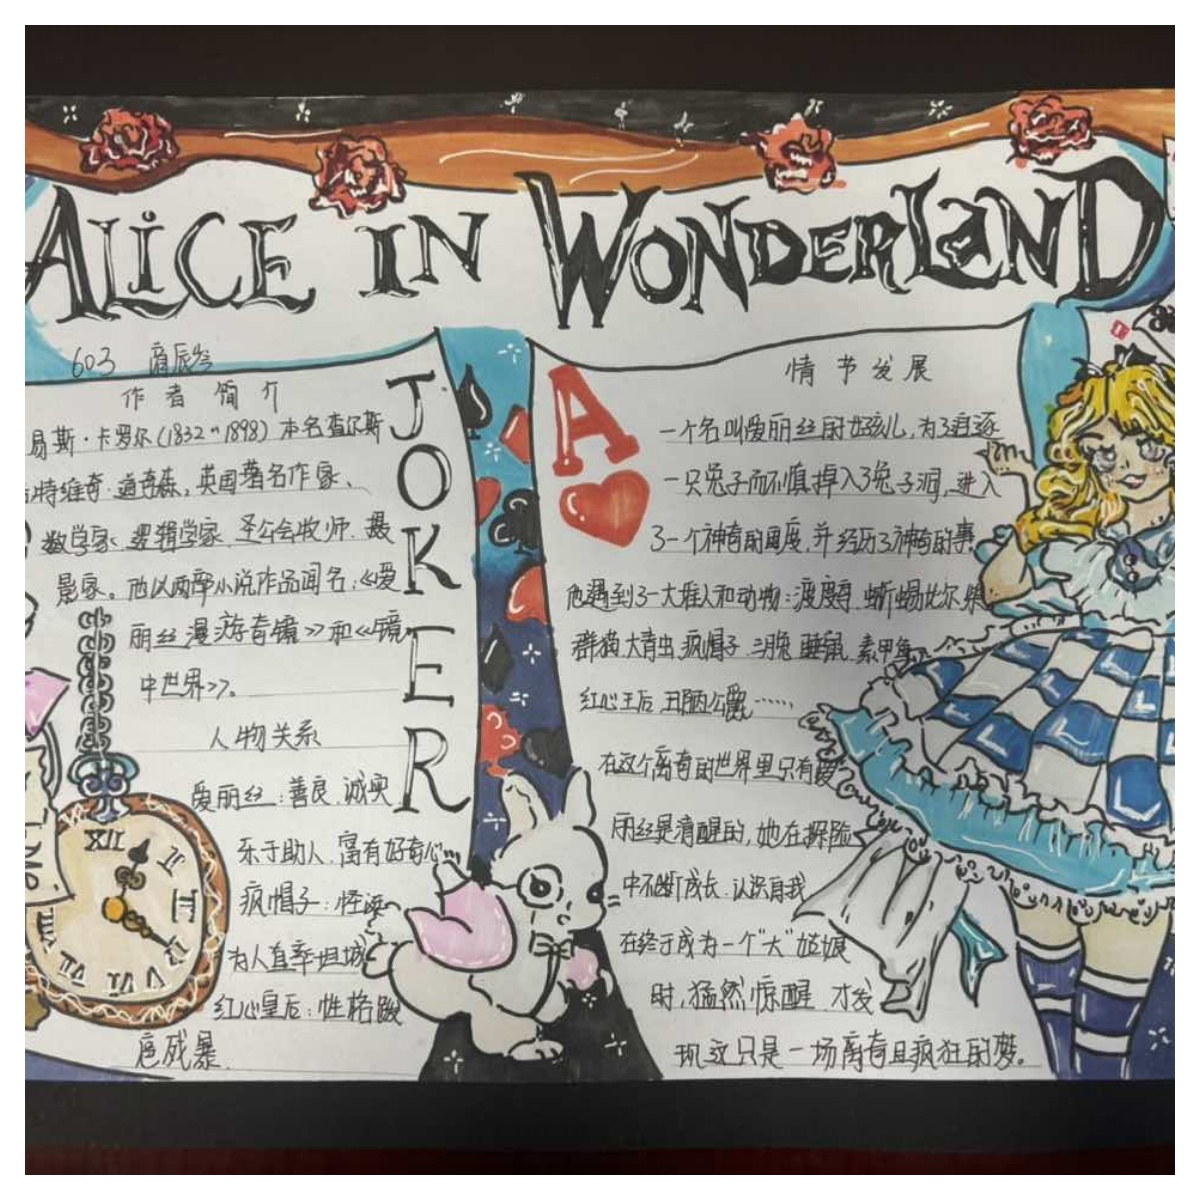 ALICE IN WONDERLAND
603
作者简介
易斯·卡罗尔(1832~1898)本名查尔斯
特维奇·道奇森,英国著名作家、
数学家、逻辑学家、圣公会牧师、摄
影家。他以两部小说作品闻名:《爱
丽丝漫游奇镜》和《镜
中世界》。
人物关系
爱丽丝:善良、诚实
乐于助人、富有好奇心
疯帽子:怪诞
为人直率坦城
红心皇后:性格
残暴.
JOKER
A
情节发展
一个名叫爱丽丝的女孩儿,为了追逐
一只兔子而不慎掉入了兔子洞,进入
了一个神奇的国度,并经历了神奇的事.
他遇到了一大堆人和动物:渡渡鸟、蜥蜴比尔、柴
群猫、大青虫、疯帽子、三月兔、睡鼠、素甲鱼、
红心王后、丑陋公爵……
在这个离奇的世界里只有爱
丽丝是清醒的,她在探险
中不断成长、认识自我
在终于成为一个"大"姑娘
时,猛然惊醒,才发
现这只是一场离奇且疯狂的梦。
XII